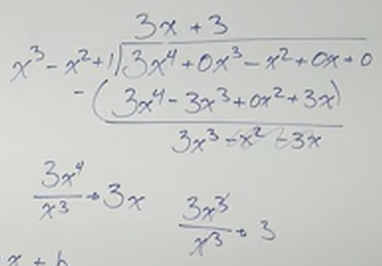 3x + 3
x³ - x² + 1 √ 3x⁴ + 0x³ - x² + 0x + 0
- (3x⁴ - 3x³ + 0x² + 3x)
3x³ - x² - 3x
3x⁴/x³ → 3x
3x³/x³ → 3